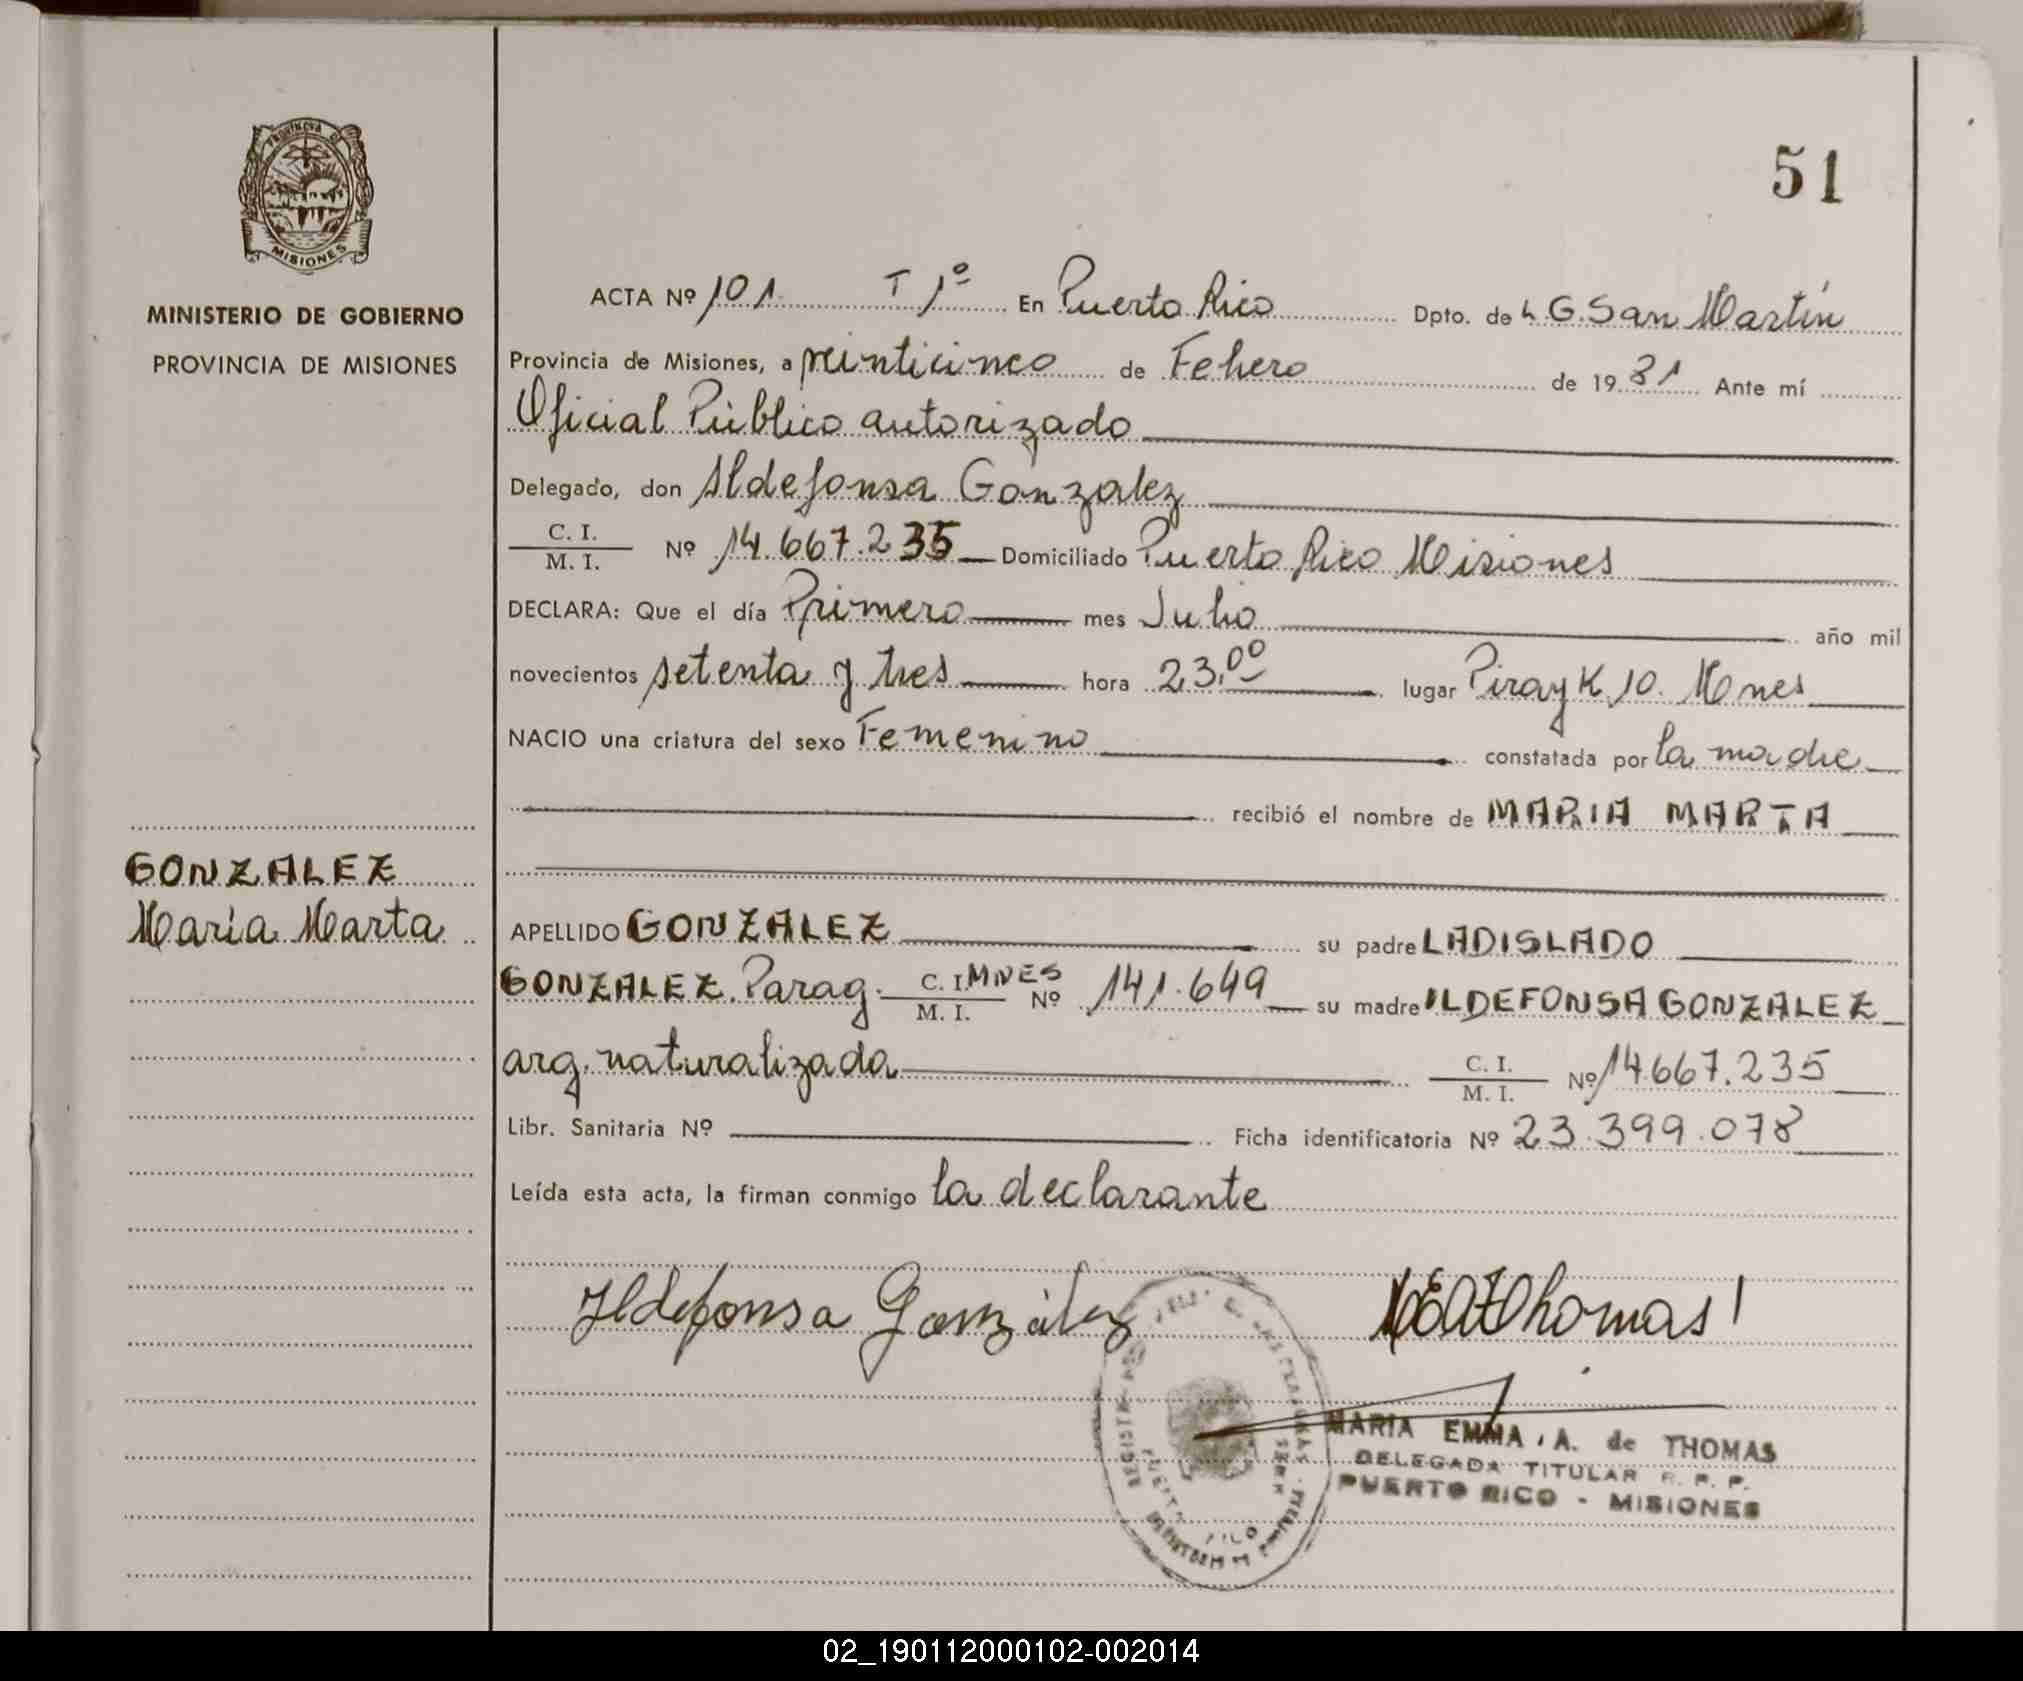 51
PROVINCIA DE
MISIONES
MINISTERIO DE GOBIERNO
PROVINCIA DE MISIONES
ACTA Nº 101 T 1º En Puerto Rico Dpto. de L G. San Martín
Provincia de Misiones, a veinticinco de Febrero de 19 81 Ante mí
Oficial Público autorizado
Delegado, don Ildefonsa Gonzalez
C. I.
M. I. Nº 14.667.235 Domiciliado Puerto Rico Misiones
DECLARA: Que el día Primero mes Julio año mil
novecientos setenta y tres hora 23,00 lugar Piray K 10. Mnes
NACIO una criatura del sexo Femenino constatada por la madre
recibió el nombre de MARIA MARTA
GONZALEZ
Maria Marta
APELLIDO GONZALEZ su padre LADISLADO
GONZALEZ. Parag. C. I. MNES M. I. Nº 141.649 su madre ILDEFONSA GONZALEZ
arg. naturalizada C. I. M. I. Nº 14.667.235
Libr. Sanitaria Nº Ficha identificatoria Nº 23.399.078
Leída esta acta, la firman conmigo la declarante
Ildefonsa González
Thomas
MARIA EMMA A. de THOMAS
DELEGADA TITULAR R. P. P.
PUERTO RICO - MISIONES
02_190112000102-002014